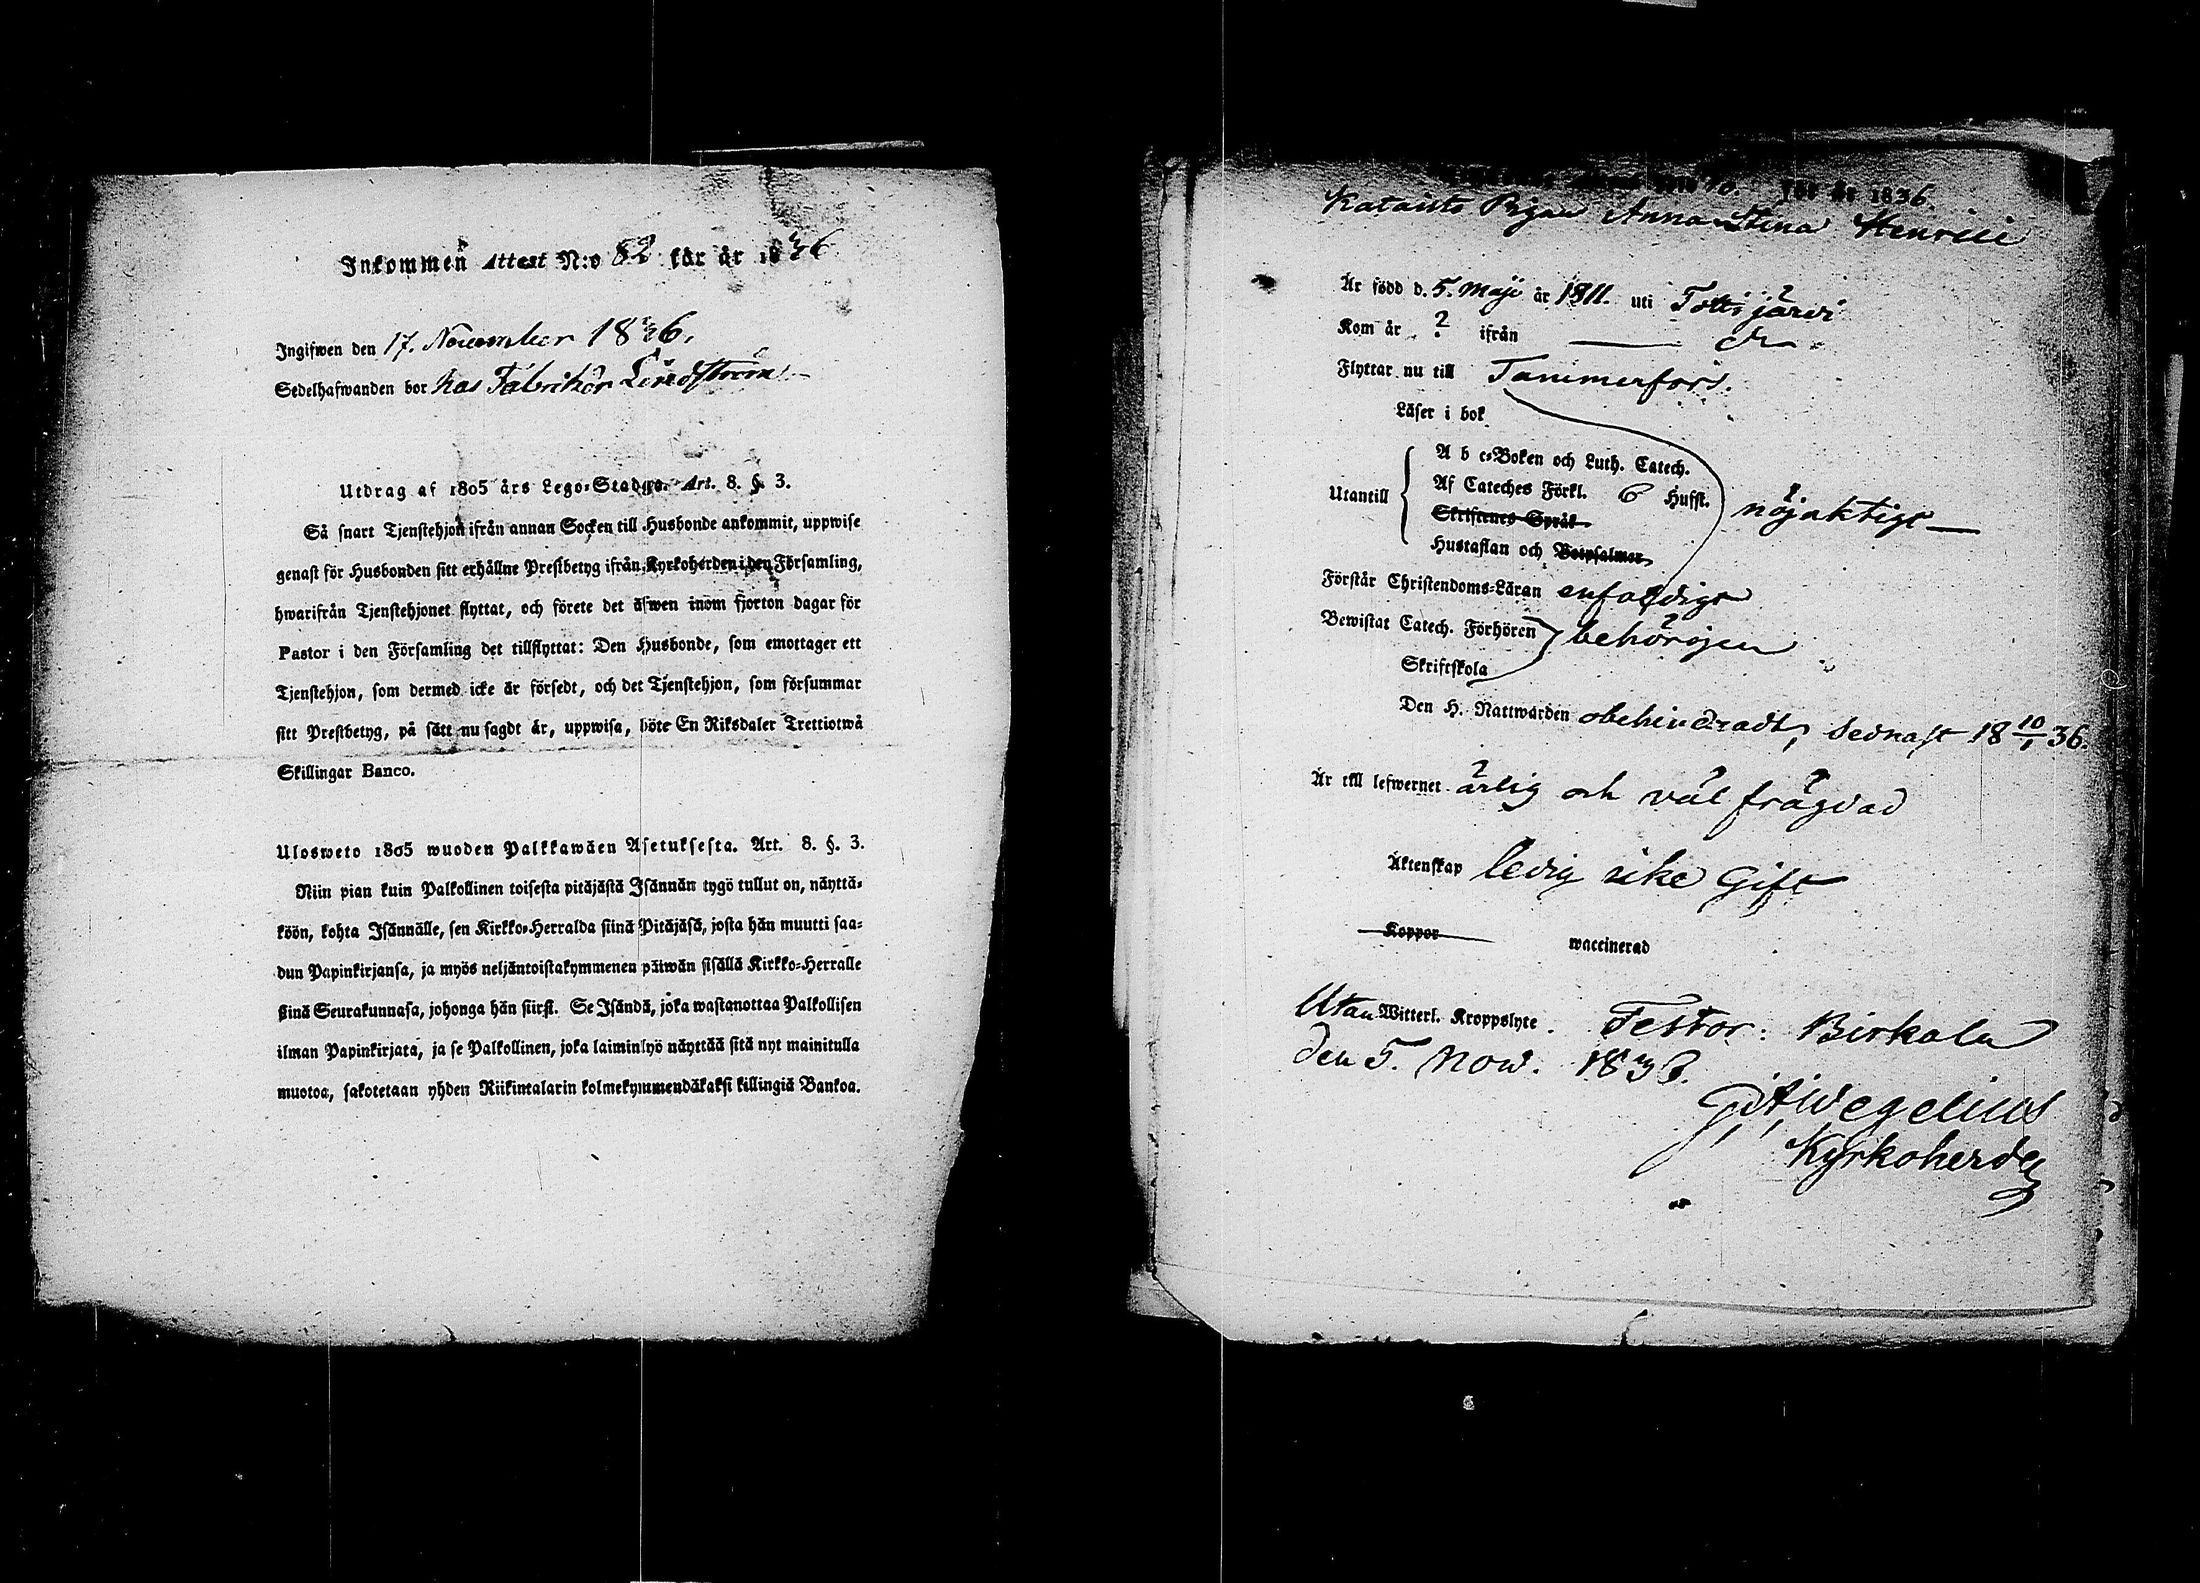 Inkommen Attest N:o 82 för år 1836
Ingifwen den 17. November 1836.
Sedelhafwanden bor hos Fabrikör Lindström
Utdrag af 1805 års Lego-Stadga. Art. 8. §. 3.
Så snart Tjenstehjon ifrån annan Socken till Husbonde ankommit, uppwise
genast för Husbonden sitt erhållne Prestbetyg ifrån Kyrkoherden i den Församling,
hwarifrån Tjenstehjonet flyttat, och förete det äfwen inom fjorton dagar för
Pastor i den Församling det tillflyttat: Den Husbonde, som emottager ett
Tjenstehjon, som dermed icke är försedt, och det Tjenstehjon, som försummar
sitt Prestbetyg, på sätt nu sagdt är, uppwisa, böte En Riksdaler Trettiotwå
Skillingar Banco.
Ulosweto 1805 wuoden Palkkawäen Asetuksesta. Art. 8. §. 3.
Niin pian kuin Palkollinen toisesta pitäjästä Isännän tygö tullut on, näyttä-
köön, kohta Isännälle, sen Kirkko-Herralda siinä Pitäjäsä, josta hän muutti saa-
dun Papinkirjansa, ja myös neljäntoistakymmenen päiwän sisällä Kirkko-Herralle
siinä Seurakunnasa, johonga hän siirst. Se Isändä, joka wastanottaa Palkollisen
ilman Papinkirjata, ja se Palkollinen, joka laiminlyö näyttää sitä nyt mainitulla
muotoa, sakotetaan yhden Riikintalarin kolmekymmendäkaksi killingiä Bankoa.
för år 1836.
Kataisto Pigan Anna Stina Henrici
Är född d. 5. Maji år 1811. uti Tottijärvi
Kom år ? ifrån
Flyttar nu till Tammerfors.
Läser i bok
A b c-Boken och Luth. Catech.
Utantill Af Cateches Förkl. 6 Hufst. nöjaktigt
Skriftenes Språk
Hustaflan och Botpsalmer
Förstår Christendoms-Läran enfaldigt
Bewistat Catech. Förhören behörigen
Skriftskola
Den H. Nattwarden obehindradt, sednast 18 10/1 36.
Är till lefwernet ärlig och väl frägdad
Äktenskap ledig icke Gift
Koppor waccinerad
Utan Witterl. Kroppslyte. Testor: Birkala
den 5. Nov. 1836.
Wegelius
Kyrkoherde